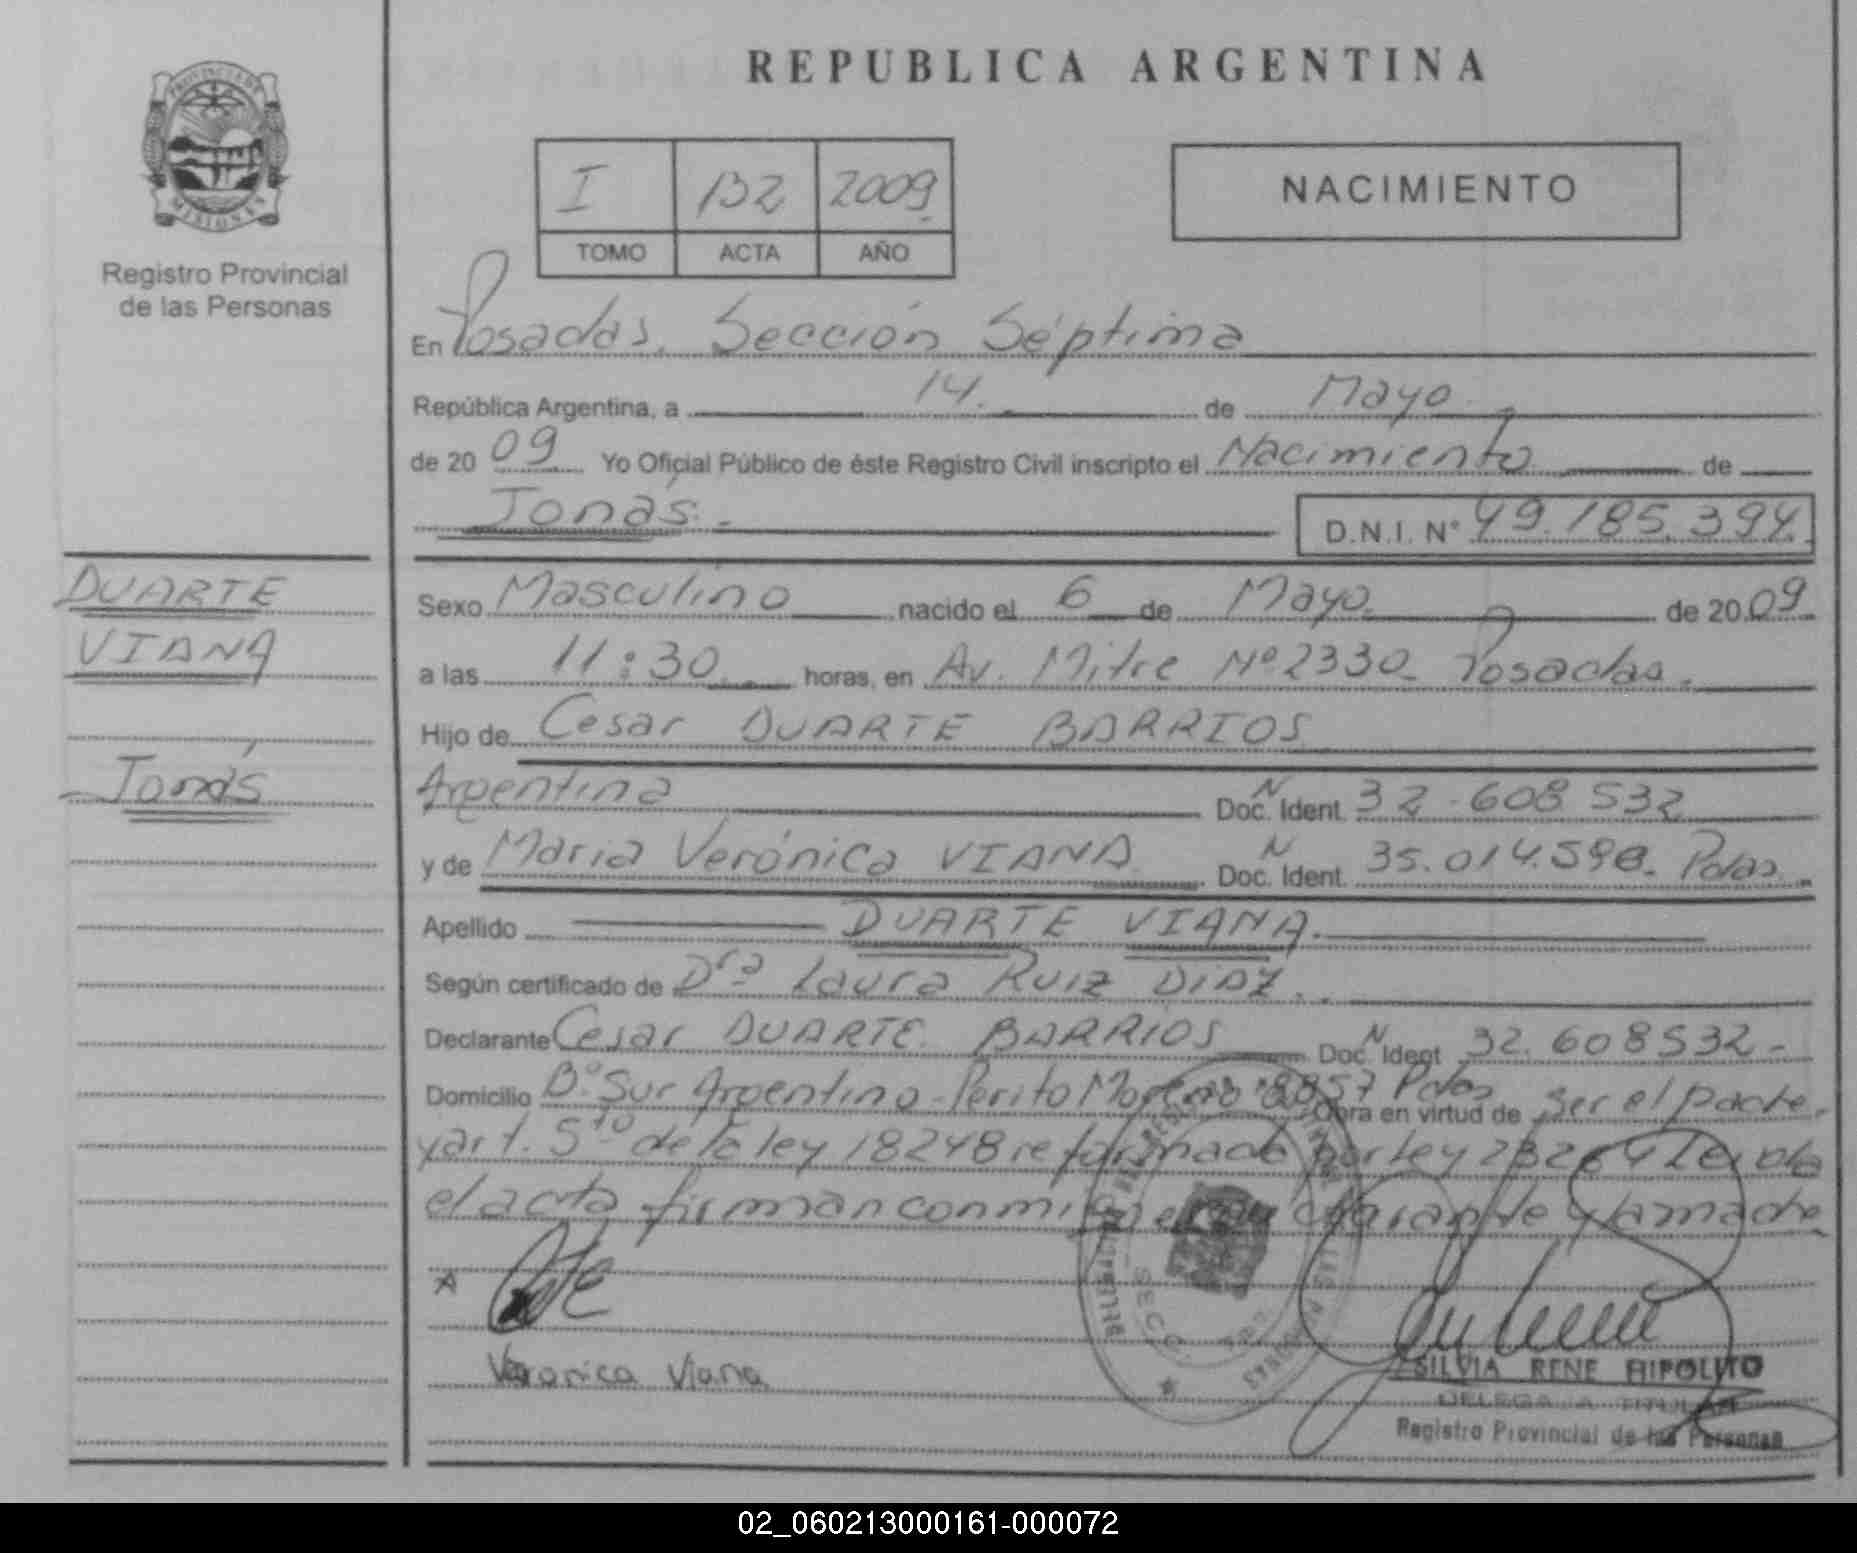 REPUBLICA ARGENTINA
PROVINCIA DE
MISIONES
Registro Provincial
de las Personas
I 132 2009
TOMO ACTA AÑO
NACIMIENTO
En Posadas. Sección Séptima
República Argentina, a 14. de Mayo
de 20 09 Yo Oficial Público de éste Registro Civil inscripto el Nacimiento de
Jonás.- D.N.I. N° 49.185.394.
DUARTE
VIANA
Jonás
Sexo Masculino nacido el 6 de Mayo de 20 09
a las 11:30 horas, en Av. Mitre Nº 2330. Posadas.
Hijo de Cesar DUARTE BARRIOS
Argentina N Doc. Ident. 32.608.532
y de Maria Verónica VIANA N Doc. Ident. 35.014.598. Pdas.
Apellido DUARTE VIANA.
Según certificado de Dra Laura Ruiz DIAZ.
Declarante Cesar DUARTE BARRIOS N Doc. Ident 32.608532-
Domicilio Bº Sur Argentino-Perito Moreno 8857 Pdas Obra en virtud de Ser el padre.
y art. 5to de la ley 18248 reformada por ley 23264 Leida
el acta firman conmigo el declarante y la madre
Veronica Viana
SILVIA RENE HIPOLITO
DELEGADA TITULAR
Registro Provincial de las Personas
02_060213000161-000072